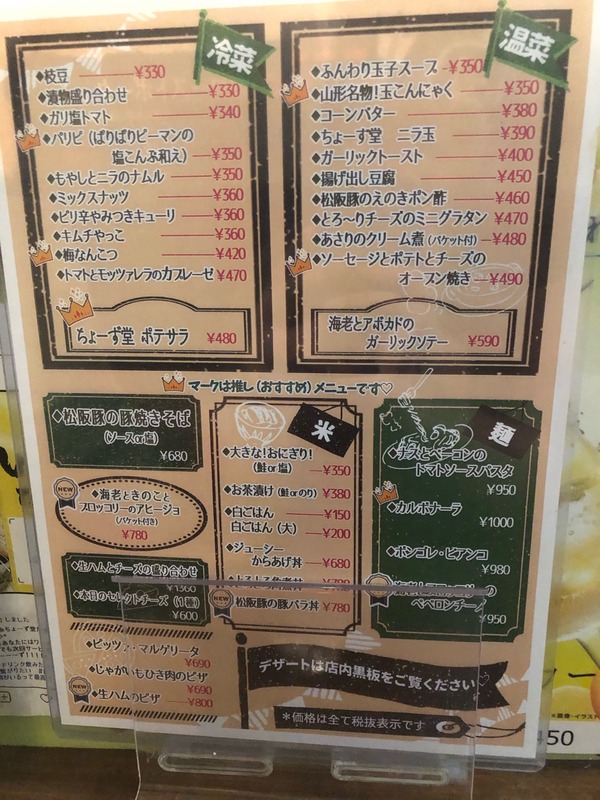 冷菜
◆枝豆 ¥330
◆漬物盛り合わせ ¥330
◆ガリ塩トマト ¥340
◆パリピ（ぱりぱりピーマンの
塩こんぶ和え） ¥350
◆もやしとニラのナムル ¥350
◆ミックスナッツ ¥360
◆ピリ辛やみつきキューリ ¥360
◆キムチやっこ ¥360
◆梅なんこつ ¥420
◆トマトとモッツァレラのカプレーゼ ¥470
ちょーず堂 ポテサラ ¥480
温菜
◆ふんわり玉子スープ ¥350
◆山形名物！玉こんにゃく ¥350
◆コーンバター ¥380
◆ちょーず堂 ニラ玉 ¥390
◆ガーリックトースト ¥400
◆揚げ出し豆腐 ¥450
◆松阪豚のえのきポン酢 ¥460
◆とろ〜りチーズのミニグラタン ¥470
◆あさりのクリーム煮（バケット付） ¥480
◆ソーセージとポテトとチーズの
オーブン焼き ¥490
海老とアボカドの
ガーリックソテー ¥590
マークは推し（おすすめ）メニューです♡
◆松阪豚の豚焼きそば
（ソースor塩）
¥680
NEW
◆海老ときのこと
ブロッコリーのアヒージョ
（バケット付き）
¥780
◆生ハムとチーズの盛り合わせ
◆本日のセレクトチーズ（1種）
¥600
ピッツァ・マルゲリータ
¥690
◆じゃがいもひき肉のピザ
¥690
NEW
◆生ハムのピザ ¥800
米
◆大きな！おにぎり！
（鮭or塩） ¥350
◆お茶漬け（鮭orのり） ¥380
◆白ごはん ¥150
白ごはん（大） ¥200
◆ジューシー
からあげ丼 ¥680
NEW
松阪豚の豚バラ丼 ¥780
麺
◆ナスとベーコンの
トマトソースパスタ
¥950
◆カルボナーラ
¥1000
◆ボンゴレ・ビアンコ
¥980
ペペロンチーノ
¥950
デザートは店内黒板をご覧ください♡
＊価格は全て税抜表示です
450